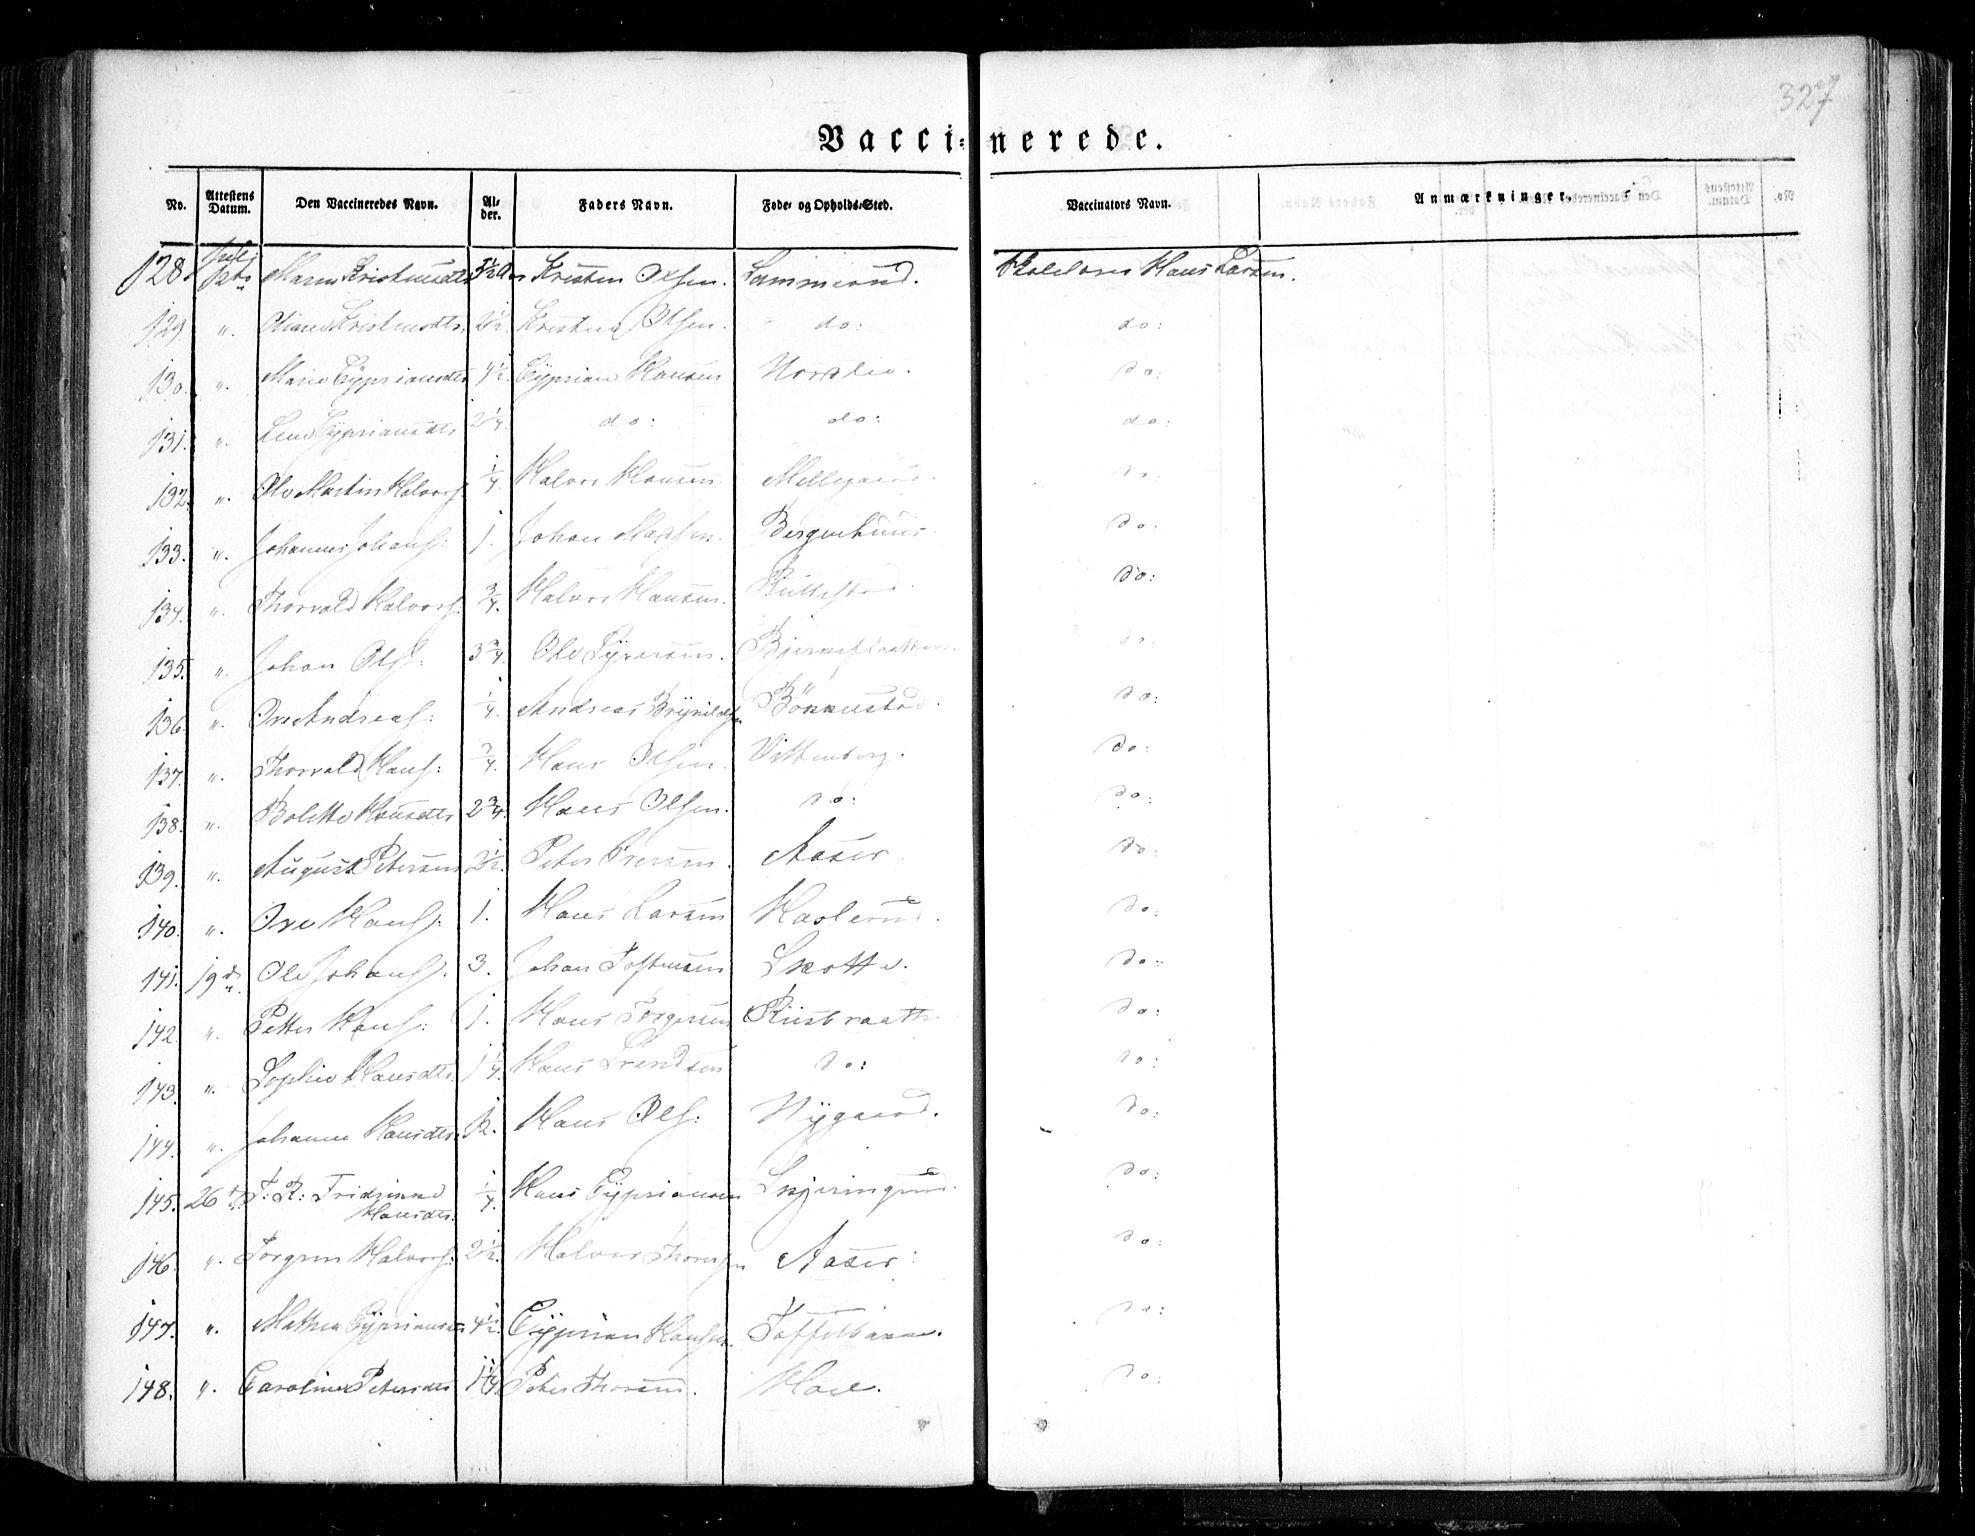 327
Vaccinerede.
No. Attestens Datum. Den Vaccineredes Navn. Alder. Faders Navn. Føde- og Opholds-Sted. Vaccinators Navn. Anmærkninger.
128. Juli Maren Kristensdtr 3½ Aar Kristen Olsen. Lammerud. Skolelærer Hans Larsen.
129. ". Kristensdtr: 2½. Kristen Olsen. do: do:
130. ". Marie Cypriansdtr 4½. Cyprian Hansen Nordlie. do:
131. ". Lene Cypriansdtr 2¼. do: do: do:
132. ". Ole Martin Halvors: ¼. Halvor Hansen. Mellegaard. do:
133. ". Johannes Johans: 1. Johan Bergenhuus. do:
134. ". Thorvald Halvors: ¾. Halvor Hansen. Rullestad do:
135. ". Johan Ols: 3¾. Ole Syversen. Bjerkeflaatten. do:
136. ". Ove Andreas: ¼. Andreas Brynildsen Bönnestad. do:
137. ". Thorvald Hans: ¾. Hans Olsen. Vittenberg. do:
138. ". Bolette Hansdtr 2¾. Hans Olsen. do: do:
139. ". August Petersen 2½. Peter Iversen. Aaser. do:
140. ". Ove Hans: 1. Hans Larsen Haslerud. do:
141. 19de Ole Johans: 3. Johan Toftensen Skotte. do:
142. ". Petter Hans: 1. Hans Torgersen Riisbraathe do:
143. ". Sophie Hansdtr. 1¼. Hans Svendsen do: do:
144. ". Johanne Hansdtr. ½. Hans Ols: Nygaard. do:
145. 26de T: R: Fridrinne Hansdtr. ¼. Hans Cypriansen Skjeringrud. do:
146. ". Jörgen Halvors: 2½. Halvor Thoresen Aaser: do:
147. ". Mathea Cypriansdtr 4½. Cyprian Hansen. Toffelbakke. do:
148. ". Caroline Petersdtr 1¼. Peter Thoresen. Hoie. do: